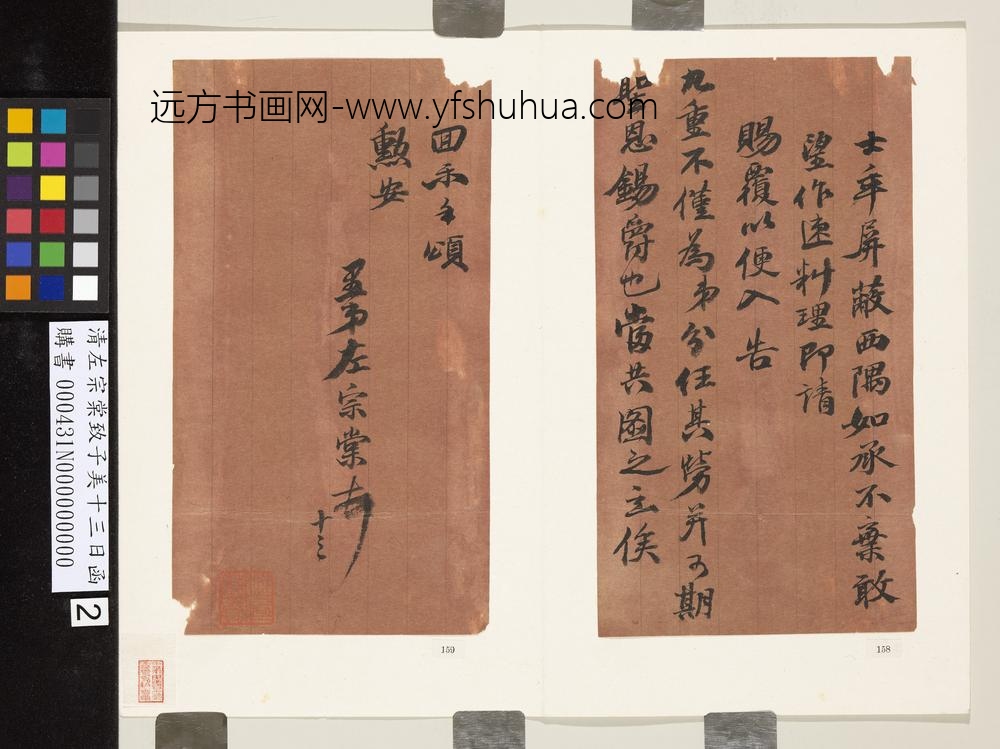 远方书画网-www.yfshuhua.com
士卒屏蔽西隅如承不棄敢
望作速料理即請
賜覆以便入告
九重不僅為弟分任其勞并可期
恩錫爵也當共圖之立俟
回示手頌
勲安
弟左宗棠
十三
158
159
清左宗棠致子美十三日函
購書 000431N000000000
2